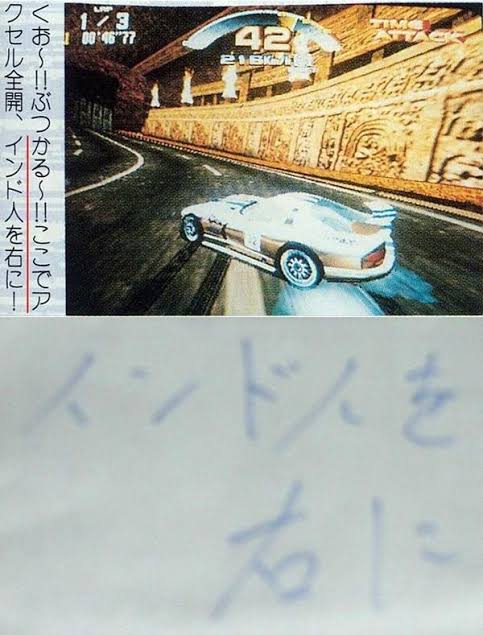 くお〜!!ぶつかる〜!!ここでア
クセル全開、インド人を右に!
LAP
1/3
00'46"77
42
TIME
ATTACK
インド人を
右に